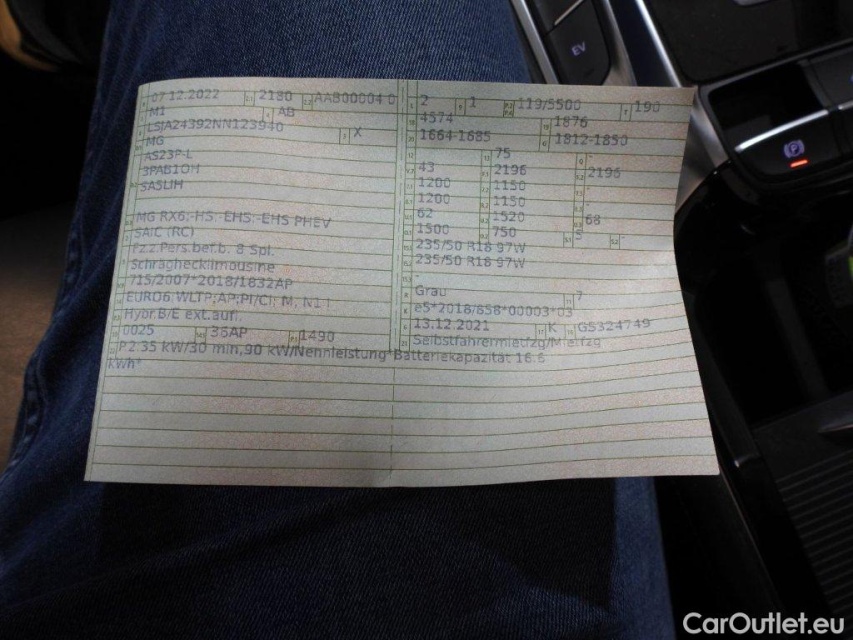 EV
07 12.2022 2180 AAB00004 0
M1 AB
LSJA24392NN123940 X
MG
AS23P-L
3PAB1DH
SASLIH
MG RX6;-HS;-EHS;-EHS PHEV
SAIC (RC)
Fz.z.Pers.bef.b. 8 Spl.
Schräghecklimousine
715/2007*2018/1832AP
EURO6 WLTP;AP;PI/CI; M, N1 I
Hybr.B/E ext.aufl.
0025 36AP 1490
P2:35 kW/30 min,90 kW/Nennleistung Batteriekapazität 16.6
kWh*
2 1 119/5500 190
4574 1876
1664-1685 1812-1850
75 -
43 2196 2196
1200 1150 -
1200 1150 -
62 1520 68
1500 750 5 -
235/50 R18 97W
235/50 R18 97W
-
Grau 7
e5*2018/858*00003*03
13.12.2021 K GS324749
Selbstfahrermietfzg/Mietfzg
CarOutlet.eu